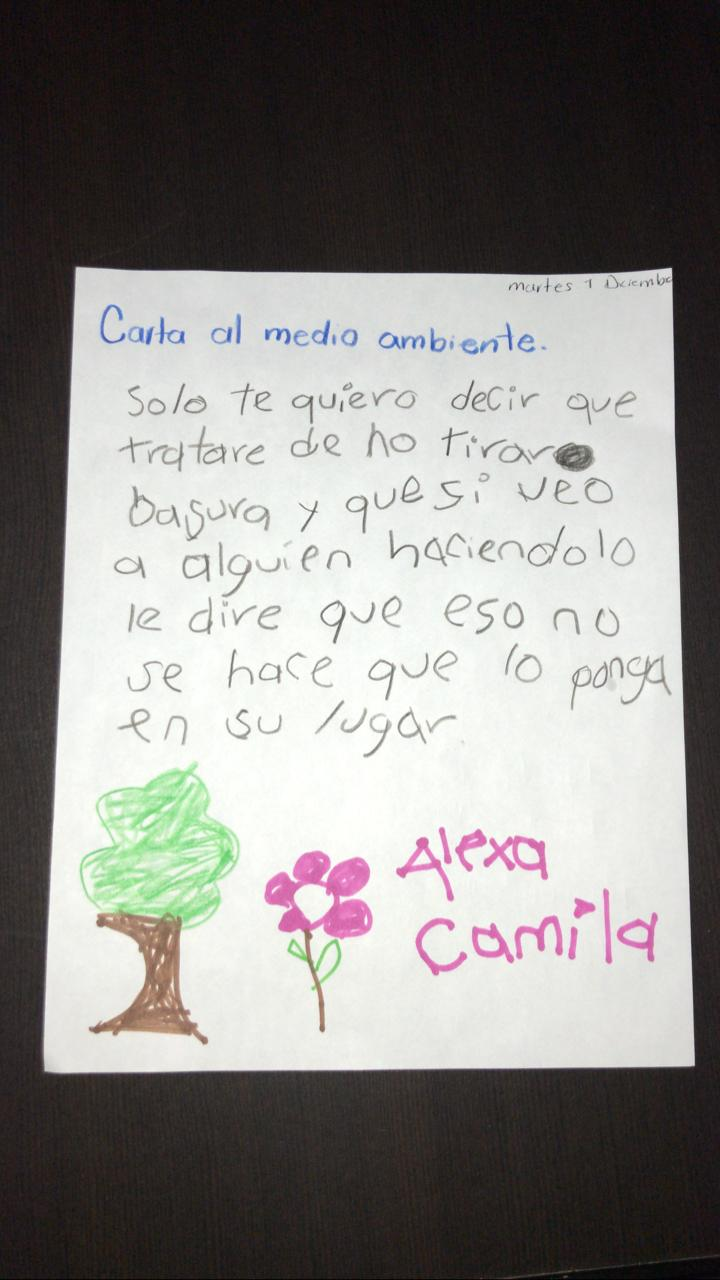 martes 1 Diciembr
Carta al medio ambiente.
Solo te quiero decir que
tratare de no tirar
basura y que si veo
a alguien haciendolo
le dire que eso no
se hace que lo ponga
en su lugar.
Alexa
Camila